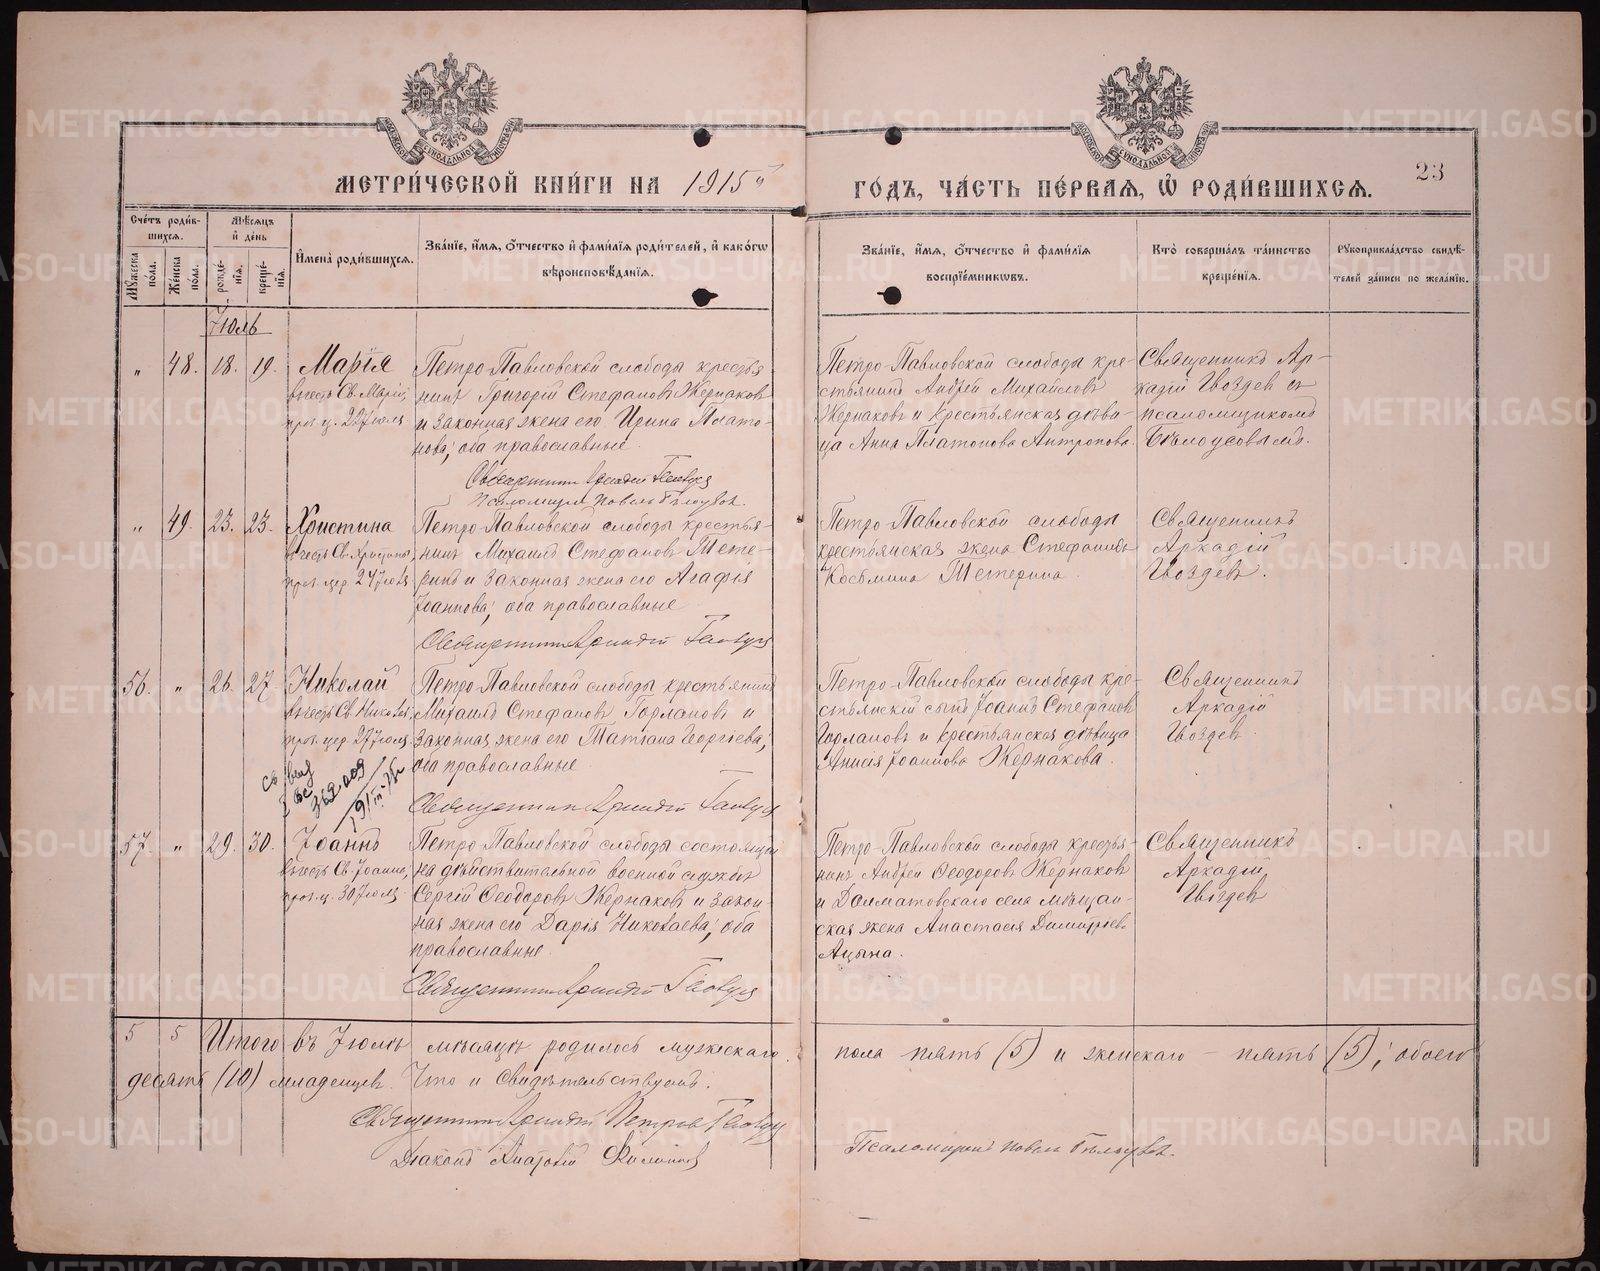 МОСКОВСКОЙ СУНОДАЛЬНОЙ ТИПОГРАФІИ
МОСКОВСКОЙ СУНОДАЛЬНОЙ ТИПОГРАФІИ
МЕТРИ́ЧЕСКОЙ КНИ́ГИ НА 1915 й
ГО́ДЪ, ЧА́СТЬ ПЕ́РВАЯ, Ѽ РОДИ́ВШИХСЯ.
23
Сче́тъ роди́в-
шихся.
Мѣ́сяцъ
и҆ де́нь
Мꙋ́жеска
пола.
Же́нска
пола.
рожде́-
нїя.
креще́-
нїя.
И҆мена̀ роди́вшихся.
Зва́нїе, и҆́мя, ѻ҆́тчество и҆ фами́лїя роди́телей, и҆ како́гѡ
вѣроисповѣ́данїя.
Зва́нїе, и҆́мя, ѻ҆́тчество и҆ фами́лїя
воспрїе́мникѡвъ.
Кто̀ соверша́лъ та́инство
креще́нїя.
Рꙋкоприкла́дство свидѣ́-
телей за́писи по жела́нїю.
Іюль
" 48. 18. 19. Марія
въ честь Св. Маріи,
пр. ц. 22 Іюля
Петро-Павловской слободы крестья-
нинъ Григорій Стефановъ Жернаковъ
и законная жена его Ирина Плато-
нова; оба православные.
Священникъ Аркадій Гвоздев
Псаломщикъ Павелъ Белоусовъ.
Петро-Павловской слободы кре-
стьянинъ Андрей Михайловъ
Жернаковъ и крестьянская дѣви-
ца Анна Платонова Антропова.
Священникъ Ар-
кадій Гвоздев съ
псаломщикомъ
Бѣлоусовымъ.
" 49. 23. 23. Христина
въ честь Св. Христины,
пр. цер. 24 Іюля
Петро-Павловской слободы крестья-
нинъ Михаилъ Стефановъ Тете-
ринъ и законная жена его Агафія
Іоаннова; оба православные
Священникъ Аркадій Гвоздев
Петро-Павловской слободы
крестьянская жена Стефанида
Косьмина Тетерина.
Священникъ
Аркадій
Гвоздев.
56. " 26. 27. Николай
въ честь Св. Николая
пр. цер. 27 Іюля
Петро-Павловской слободы крестьянинъ
Михаилъ Стефановъ Горлановъ и
законная жена его Татіана Георгіева;
оба православные
Священникъ Аркадій Гвоздев
Петро-Павловской слободы кре-
стьянскій сынъ Іоаннъ Стефанов
Горлановъ и крестьянская дѣвица
Анисія Іоаннова Жернакова.
Священникъ
Аркадій
Гвоздев.
369.009
57. " 29. 30. Іоаннъ
въ честь Св. Іоанна,
пр. ц. 30 Іюля
Петро-Павловской слободы состоящій
на дѣйствительной военной службѣ
Сергій Ѳеодоровъ Жернаковъ и закон-
ная жена его Дарія Николаева; оба
православные.
Священникъ Аркадій Гвоздев
Петро-Павловской слободы крестья-
нинъ Андрей Ѳеодоровъ Жернаков
и Долматовскаго села мѣщан-
ская жена Анастасія Димитріева
Ацына.
Священникъ
Аркадій
Гвоздев
5 5 Итого въ Іюлѣ мѣсяцѣ родилось мужескаго пола пять (5) и женскаго – пять (5); обоего
десять (10) младенцев. Что и свидѣтельствуемъ.
Священникъ Аркадій Петров Гвоздев
Діаконъ Анатолій
Псаломщикъ Павелъ Белоусовъ.
METRIKI.GASO-URAL.RU